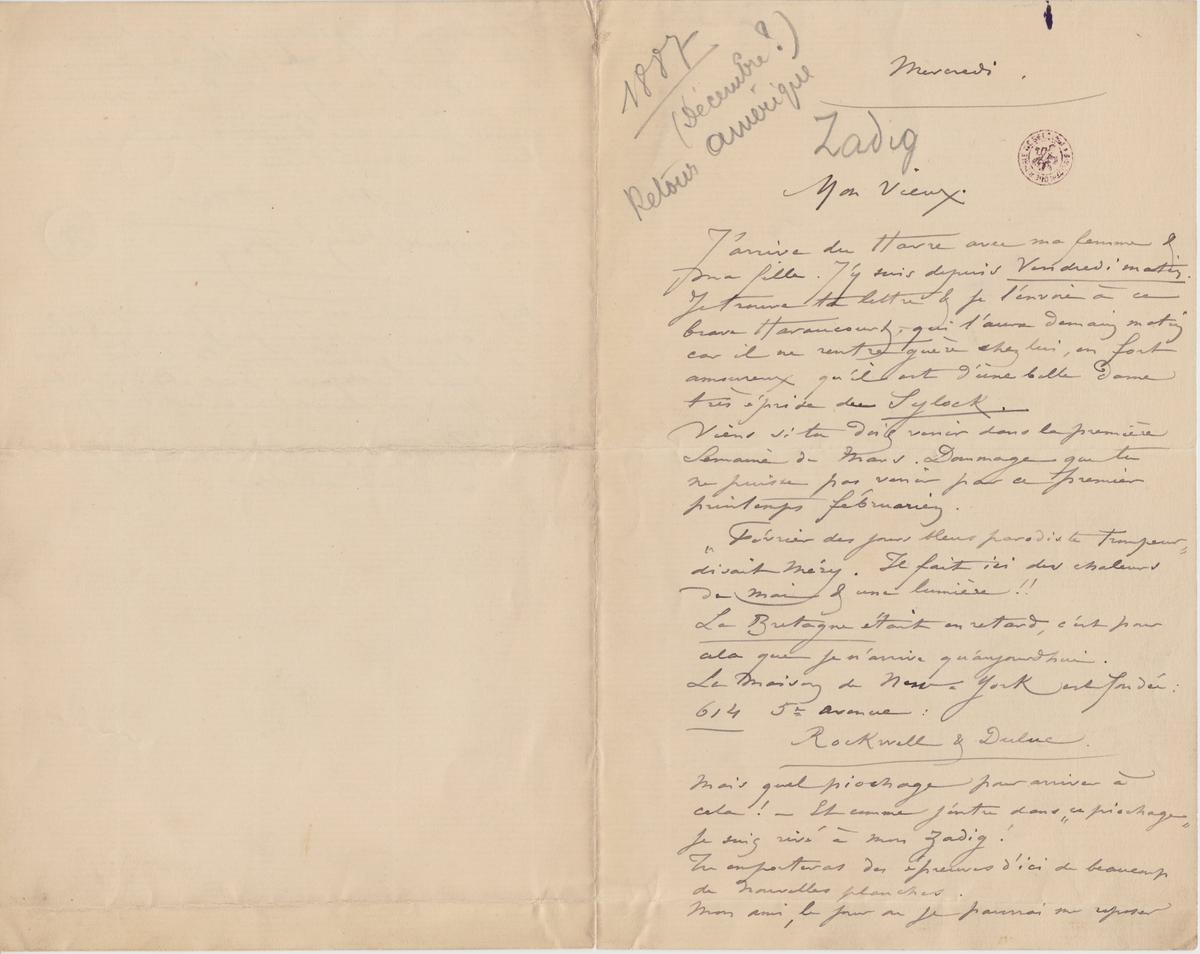 1887
(Décembre?)
Retour amérique
Mercredi.
Zadig
Mon Vieux.
J'arrive du Havre avec ma femme &
ma fille. J'y suis depuis Vendredi matin.
Je trouve ta lettre & je l'envoie à ce
brave Haraucourt, qui l'aura demain matin
car il ne rentre guère chez lui, en fort
amoureux qu'il est d'une belle dame
très éprise de Sylock.
Viens si tu dois venir dans la première
Semaine de Mars. Dommage que tu
ne puisse pas venir par ce premier
printemps februarien.
"Février des jours bleus parodiste trompeur"
disait Méry. Il fait ici des chaleurs
de mai & une lumière!!
La Bretagne était en retard, c'est pour
cela que je n'arrive qu'aujourdhui.
La Maison de New-York est fondée:
614 5e avenue:
Rockwell & Duluc.
Mais quel piochage pour arriver à
cela! — Et comme j'entre dans "ce piochage"
Je suis rivé à mon Zadig!
Tu emporteras des épreuves d'ici de beaucoup
de nouvelles planches.
Mon ami, le jour ou je pourrai me reposer